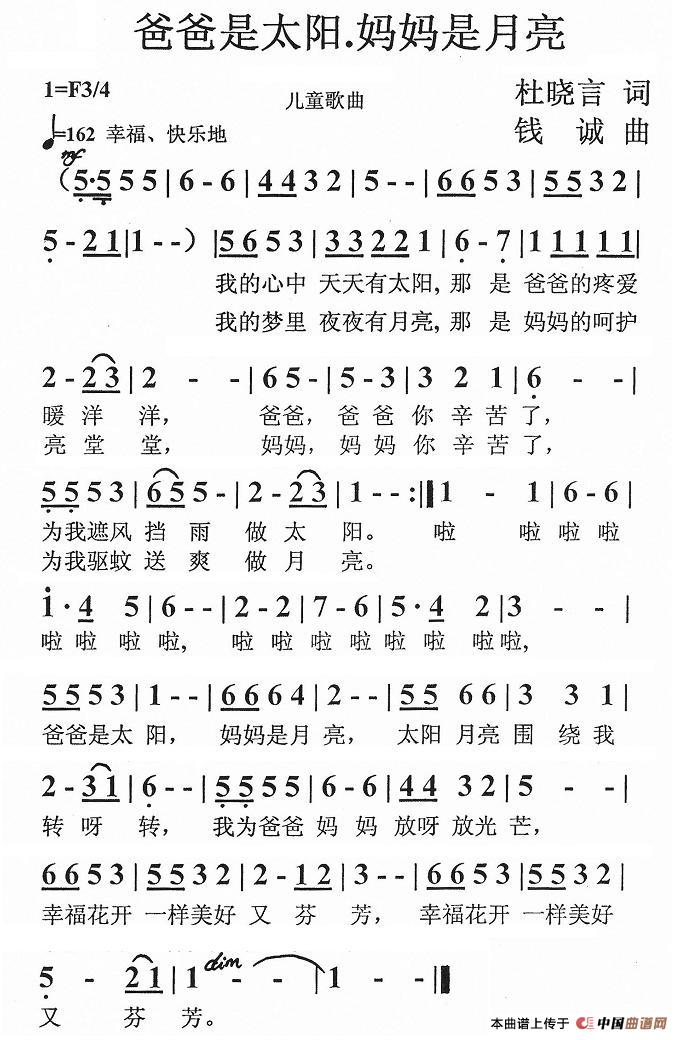 爸爸是太阳.妈妈是月亮
1=F3/4
儿童歌曲
杜晓言 词
=162 幸福、快乐地
钱 诚 曲
mf
（5·5 5 5|6 - 6|4 4 3 2|5 - -|6 6 5 3|5 5 3 2|
5 - 2 1|1 - -）|5 6 5 3|3 3 2 2 1|6 - 7|1 1 1 1 1|
我的心中 天天有太阳, 那 是 爸爸的疼爱
我的梦里 夜夜有月亮, 那 是 妈妈的呵护
2 - 2 3|2 - -|6 5 -|5 - 3|3 2 1|6 - -|
暖 洋 洋, 爸爸, 爸 爸 你 辛 苦 了,
亮 堂 堂, 妈妈, 妈 妈 你 辛 苦 了,
5 5 5 3|6 5 5 -|2 - 2 3|1 - - :‖1 - 1|6 - 6|
为我遮风 挡 雨 做 太 阳。 啦 啦 啦 啦
为我驱蚊 送 爽 做 月 亮。
1 · 4 5|6 - -|2 - 2|7 - 6|5 · 4 2|3 - -|
啦 啦 啦 啦, 啦 啦 啦 啦 啦 啦 啦 啦,
5 5 5 3|1 - -|6 6 6 4|2 - -|5 5 6 6|3 3 1|
爸爸是太 阳, 妈妈是月 亮, 太阳 月亮 围 绕 我
2 - 3 1|6 - -|5 5 5 5|6 - 6|4 4 3 2|5 - -|
转 呀 转, 我为爸爸 妈 妈 放呀 放光 芒,
6 6 5 3|5 5 3 2|2 - 1 2|3 - -|6 6 5 3|5 5 3 2|
幸福花开 一样美好 又 芬 芳, 幸福花开 一样美好
5 - 2 1|1 - -|1 - -‖
dim
又 芬 芳。
本曲谱上传于 中国曲谱网